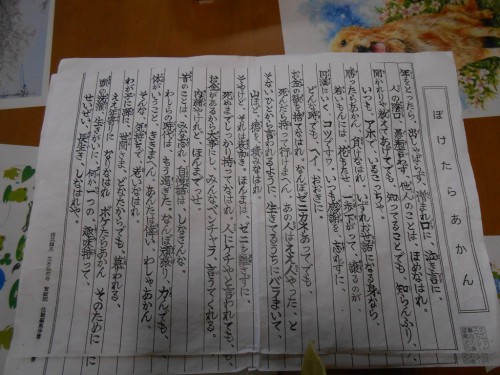 ぼけたらあかん
年をとったら、出しゃばらず、憎まれ口に、泣き言に、
人の陰口、愚痴言わず、他人のことは、ほめなはれ。
聞かれりゃ教えてあげてでも、知ってることでも、知らんふり、
いつも、アホで、いるこっちゃ。
勝ったらあかん、負けなはれ、いずれお世話になる身なら、
若いもんには花もたせ、一歩下がって、譲るのが、
円満にいく、コツですわ、いつも感謝を、忘れずに、
どんな時でも、ヘイ、おおきに。
お金の欲を、捨てなはれ、なんぼゼニカネあってでも、
死んだら持って行けまへん、あの人はええ人やった、と
そないひとから言われるように、生きてるうちにバラまいて、
山ほど徳を積みなはれ
そやけど、それは表向き、ほんまは、ゼニを離さずに、
死ぬまでしっかり持ってなはれ、人にケチやと言われても、
お金があるから大事にし、みんなベンチャラ、言うてくれる。
内緒やけれど、ほんまでっせ。
昔のことは、みな忘れ、自慢話は、しなさんな、
わしらの時代は、もう過ぎた、なんぼ頑張り、力んでも、
体がいうこと、ききまへん、あんたは偉い、わしゃあかん、
そんな、気持ちで、老いなはれ
わが子に孫に、世間さま、どなたからでも、慕われる、
ええ年寄りに、なりなはれ、ボケたらあかん、そのために
頭の洗濯、生きがいに、何か一つの、趣味持って、
せいぜい、長生き、しなはれや。